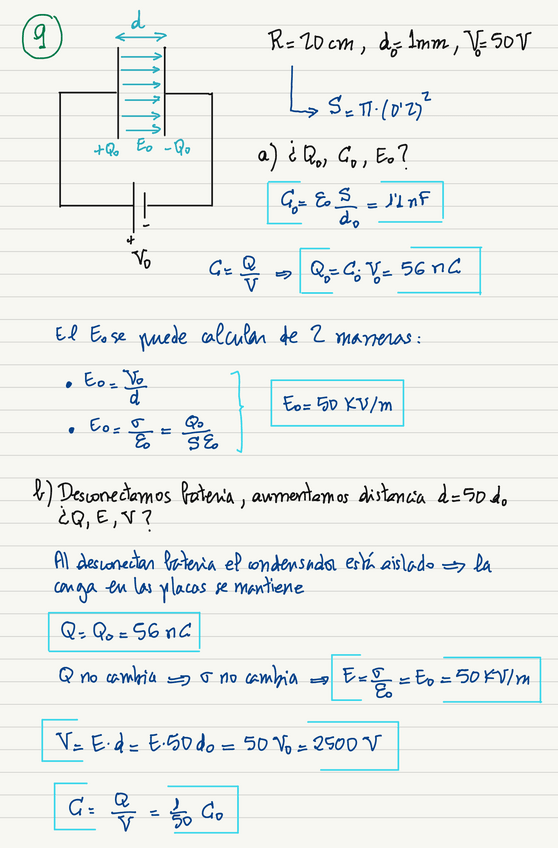 9
d
R = 20 cm, d₀ = 1mm, V₀ = 50 V
S = π · (0'2)²
+Q₀ E₀ -Q₀
a) ¿Q₀, C₀, E₀?
C₀ = ε₀ S/d₀ = 1'1 nF
+ -
V₀
C = Q/V ⇒ Q₀ = C₀·V₀ = 56 nC
El E₀ se puede calcular de 2 maneras:
• E₀ = V₀/d
• E₀ = σ/ε₀ = Q₀/Sε₀
E₀ = 50 KV/m
b) Desconectamos batería, aumentamos distancia d = 50 d₀
¿Q, E, V?
Al desconectar batería el condensador está aislado ⇒ la
carga en las placas se mantiene
Q = Q₀ = 56 nC
Q no cambia ⇒ σ no cambia ⇒ E = σ/ε₀ = E₀ = 50 KV/m
V = E·d = E·50 d₀ = 50 V₀ = 2500 V
C = Q/V = 1/50 C₀